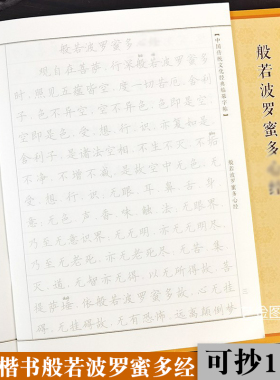 般若波罗蜜多
观自在菩萨，行深般若波罗蜜多
时，照见五蕴皆空，度一切苦厄。舍利
子，色不异空，空不异色，色即是空，
空即是色，受想行识，亦复如是。
舍利子，是诸法空相，不生不灭，不垢
不净，不增不减，是故空中无色，无
受想行识，无眼耳鼻舌身
意，无色声香味触法，无眼界，
乃至无意识界，无无明，亦无无明尽，
乃至无老死，亦无老死尽，无苦集
灭道，无智亦无得，以无所得故，菩
提萨埵，依般若波罗蜜多故，心无挂
碍，无挂碍故，无有恐怖，远离颠倒梦
【中国传统文化经典临摹字帖】
般若波罗蜜多心经
般若波罗蜜多心经
楷书般若波罗蜜多经
可抄1